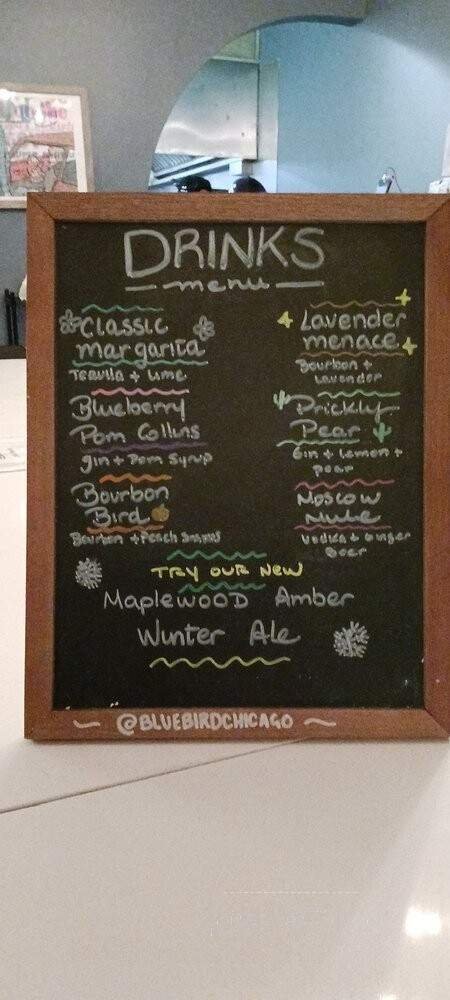 DRINKS
menu
Classic
margarita
Tequila + Lime
Blueberry
Pom Collins
gin + Pom Syrup
Bourbon
Bird
Bourbon + Peach
Lavender
menace
Bourbon +
Lavender
Prickly
Pear
Gin + lemon +
pear
Moscow
Mule
Vodka + Ginger
Beer
TRY OUR NEW
MAPLEWOOD Amber
Winter Ale
@BLUEBIRDCHICAGO